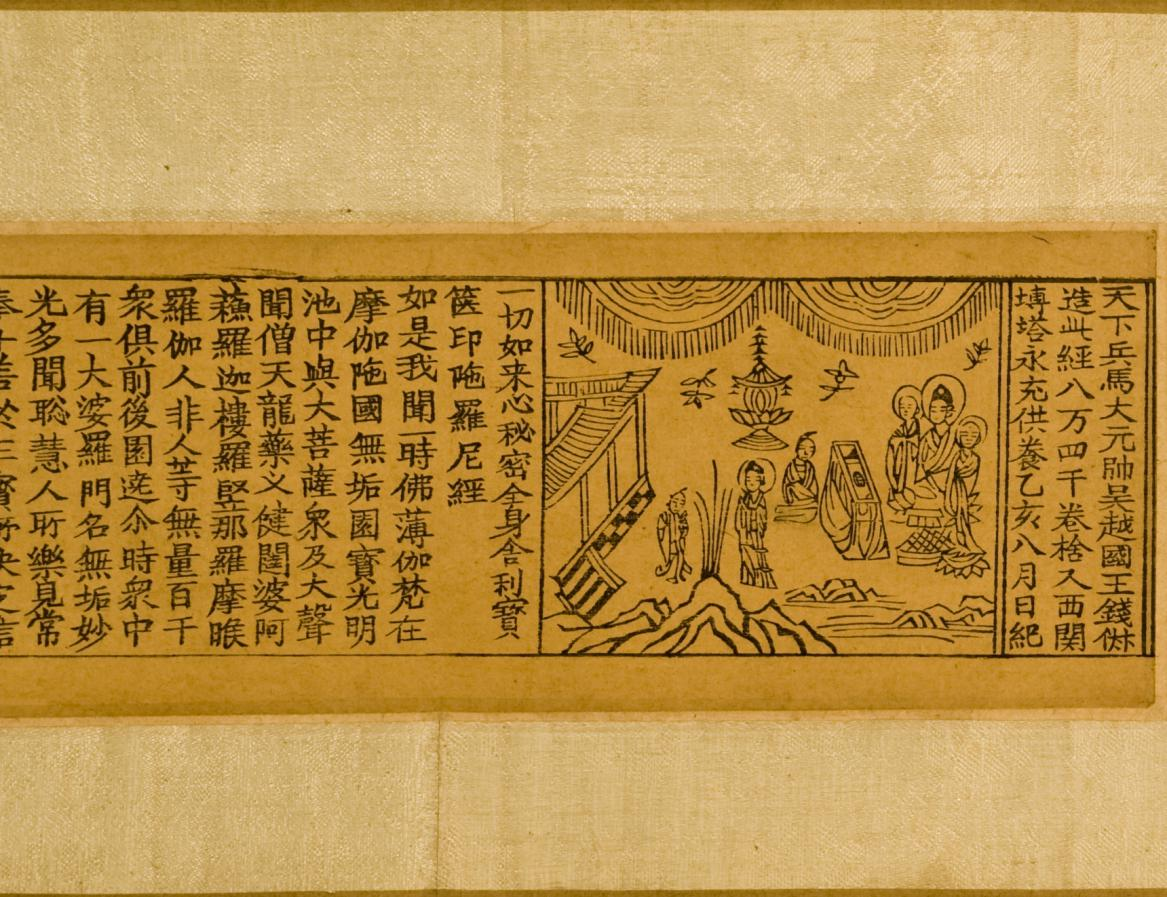 天下兵馬大元帥吳越國王錢俶
造此經八万四千卷捨入西関
塼塔永充供養乙亥八月日紀
一切如来心秘密全身舍利寶
篋印陁羅尼經
如是我聞一時佛薄伽梵在
摩伽陁國無垢園寶光明
池中與大菩薩衆及大聲
聞僧天龍藥义健闥婆阿
蘓羅迦樓羅堅那羅摩睺
羅伽人非人䒭無量百千
衆俱前後圍遶尒時衆中
有一大婆羅門名無垢妙
光多聞聡慧人所樂見常